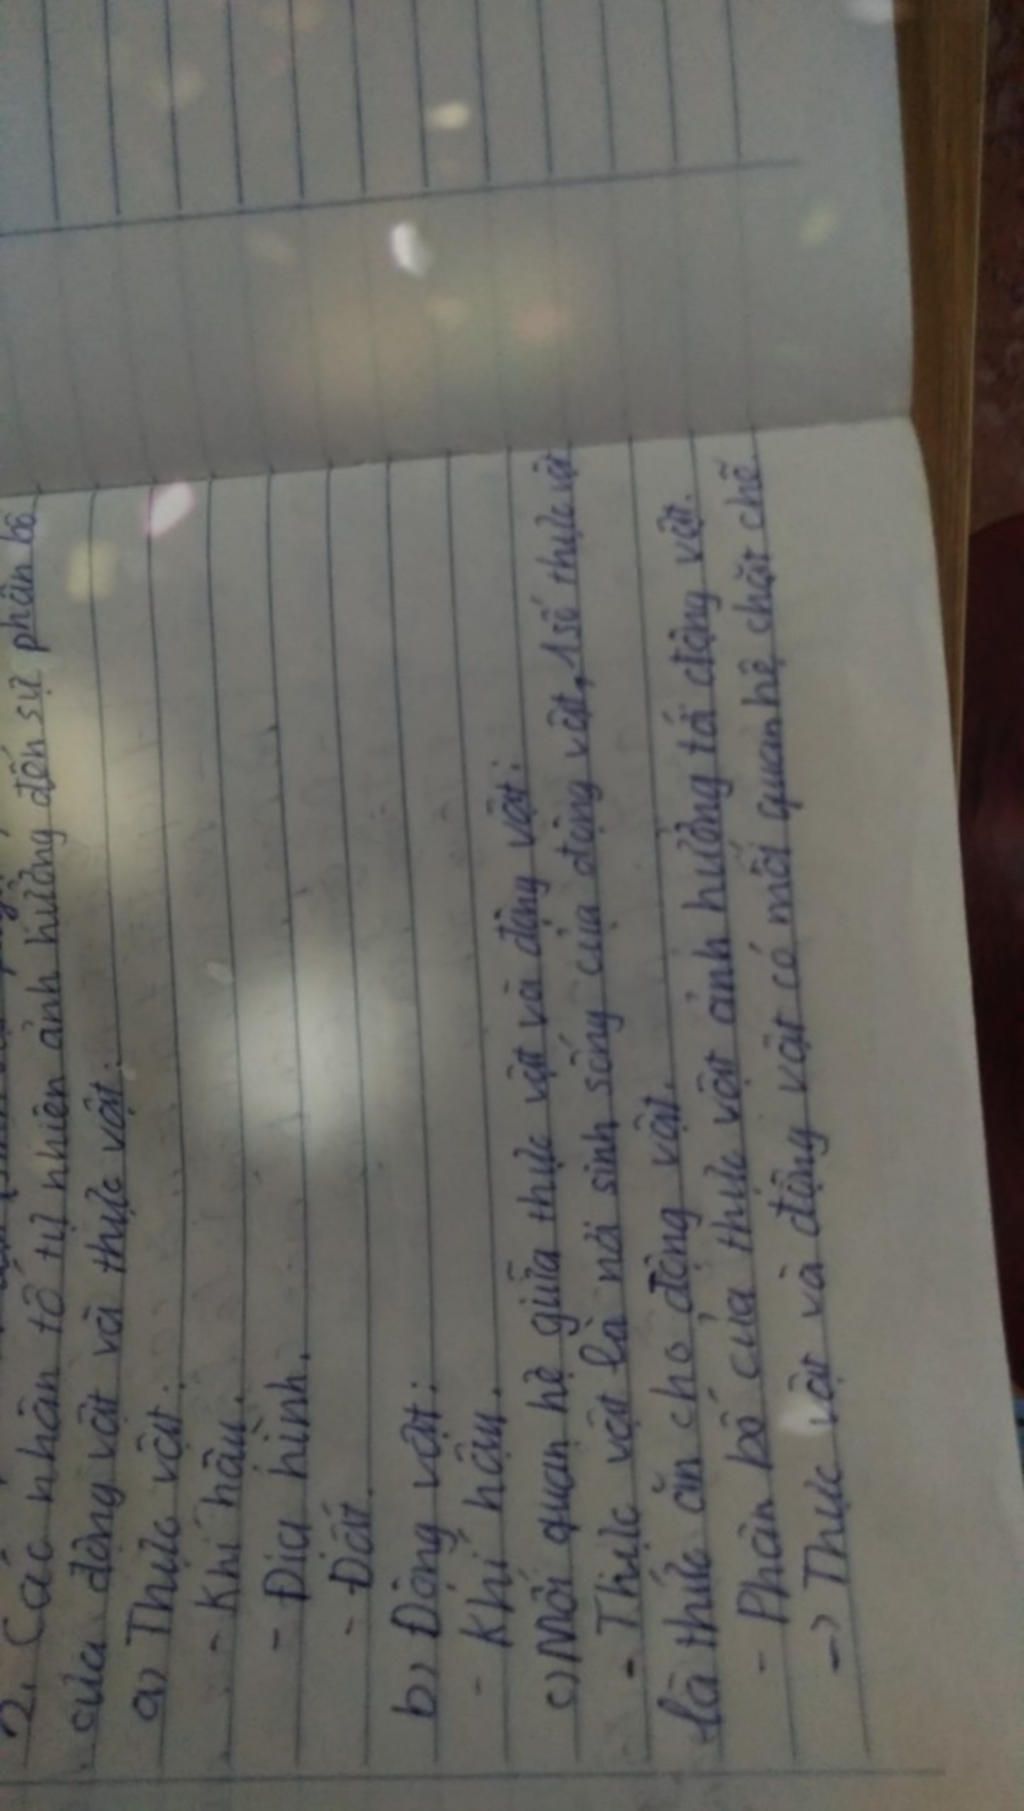 2. Các nhân tố tự nhiên ảnh hưởng đến sự phân bố
của động vật và thực vật:
a) Thực vật:
- Khí hậu.
- Địa hình.
- Đất.
b) Động vật:
- Khí hậu.
c) Mối quan hệ giữa thực vật và động vật:
- Thực vật là nơi sinh sống của động vật, 1 số thực vật
là thức ăn cho động vật.
- Phân bố của thực vật ảnh hưởng tới động vật.
-> Thực vật và động vật có mối quan hệ chặt chẽ.